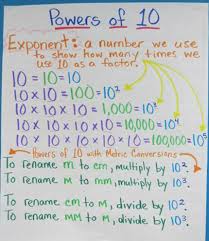 Powers of 10
Exponent: a number we use
to show how many times we
use 10 as a factor.
10 = 10 = 10
10 × 10 = 100 = 10²
10 × 10 × 10 = 1,000 = 10³
10 × 10 × 10 × 10 = 10,000 = 10⁴
10 × 10 × 10 × 10 × 10 = 100,000 = 10⁵
Powers of 10 with Metric Conversions
To rename m to cm, multiply by 10².
To rename m to mm, multiply by 10³.
To rename cm to m, divide by 10².
To rename mm to m, divide by 10³.